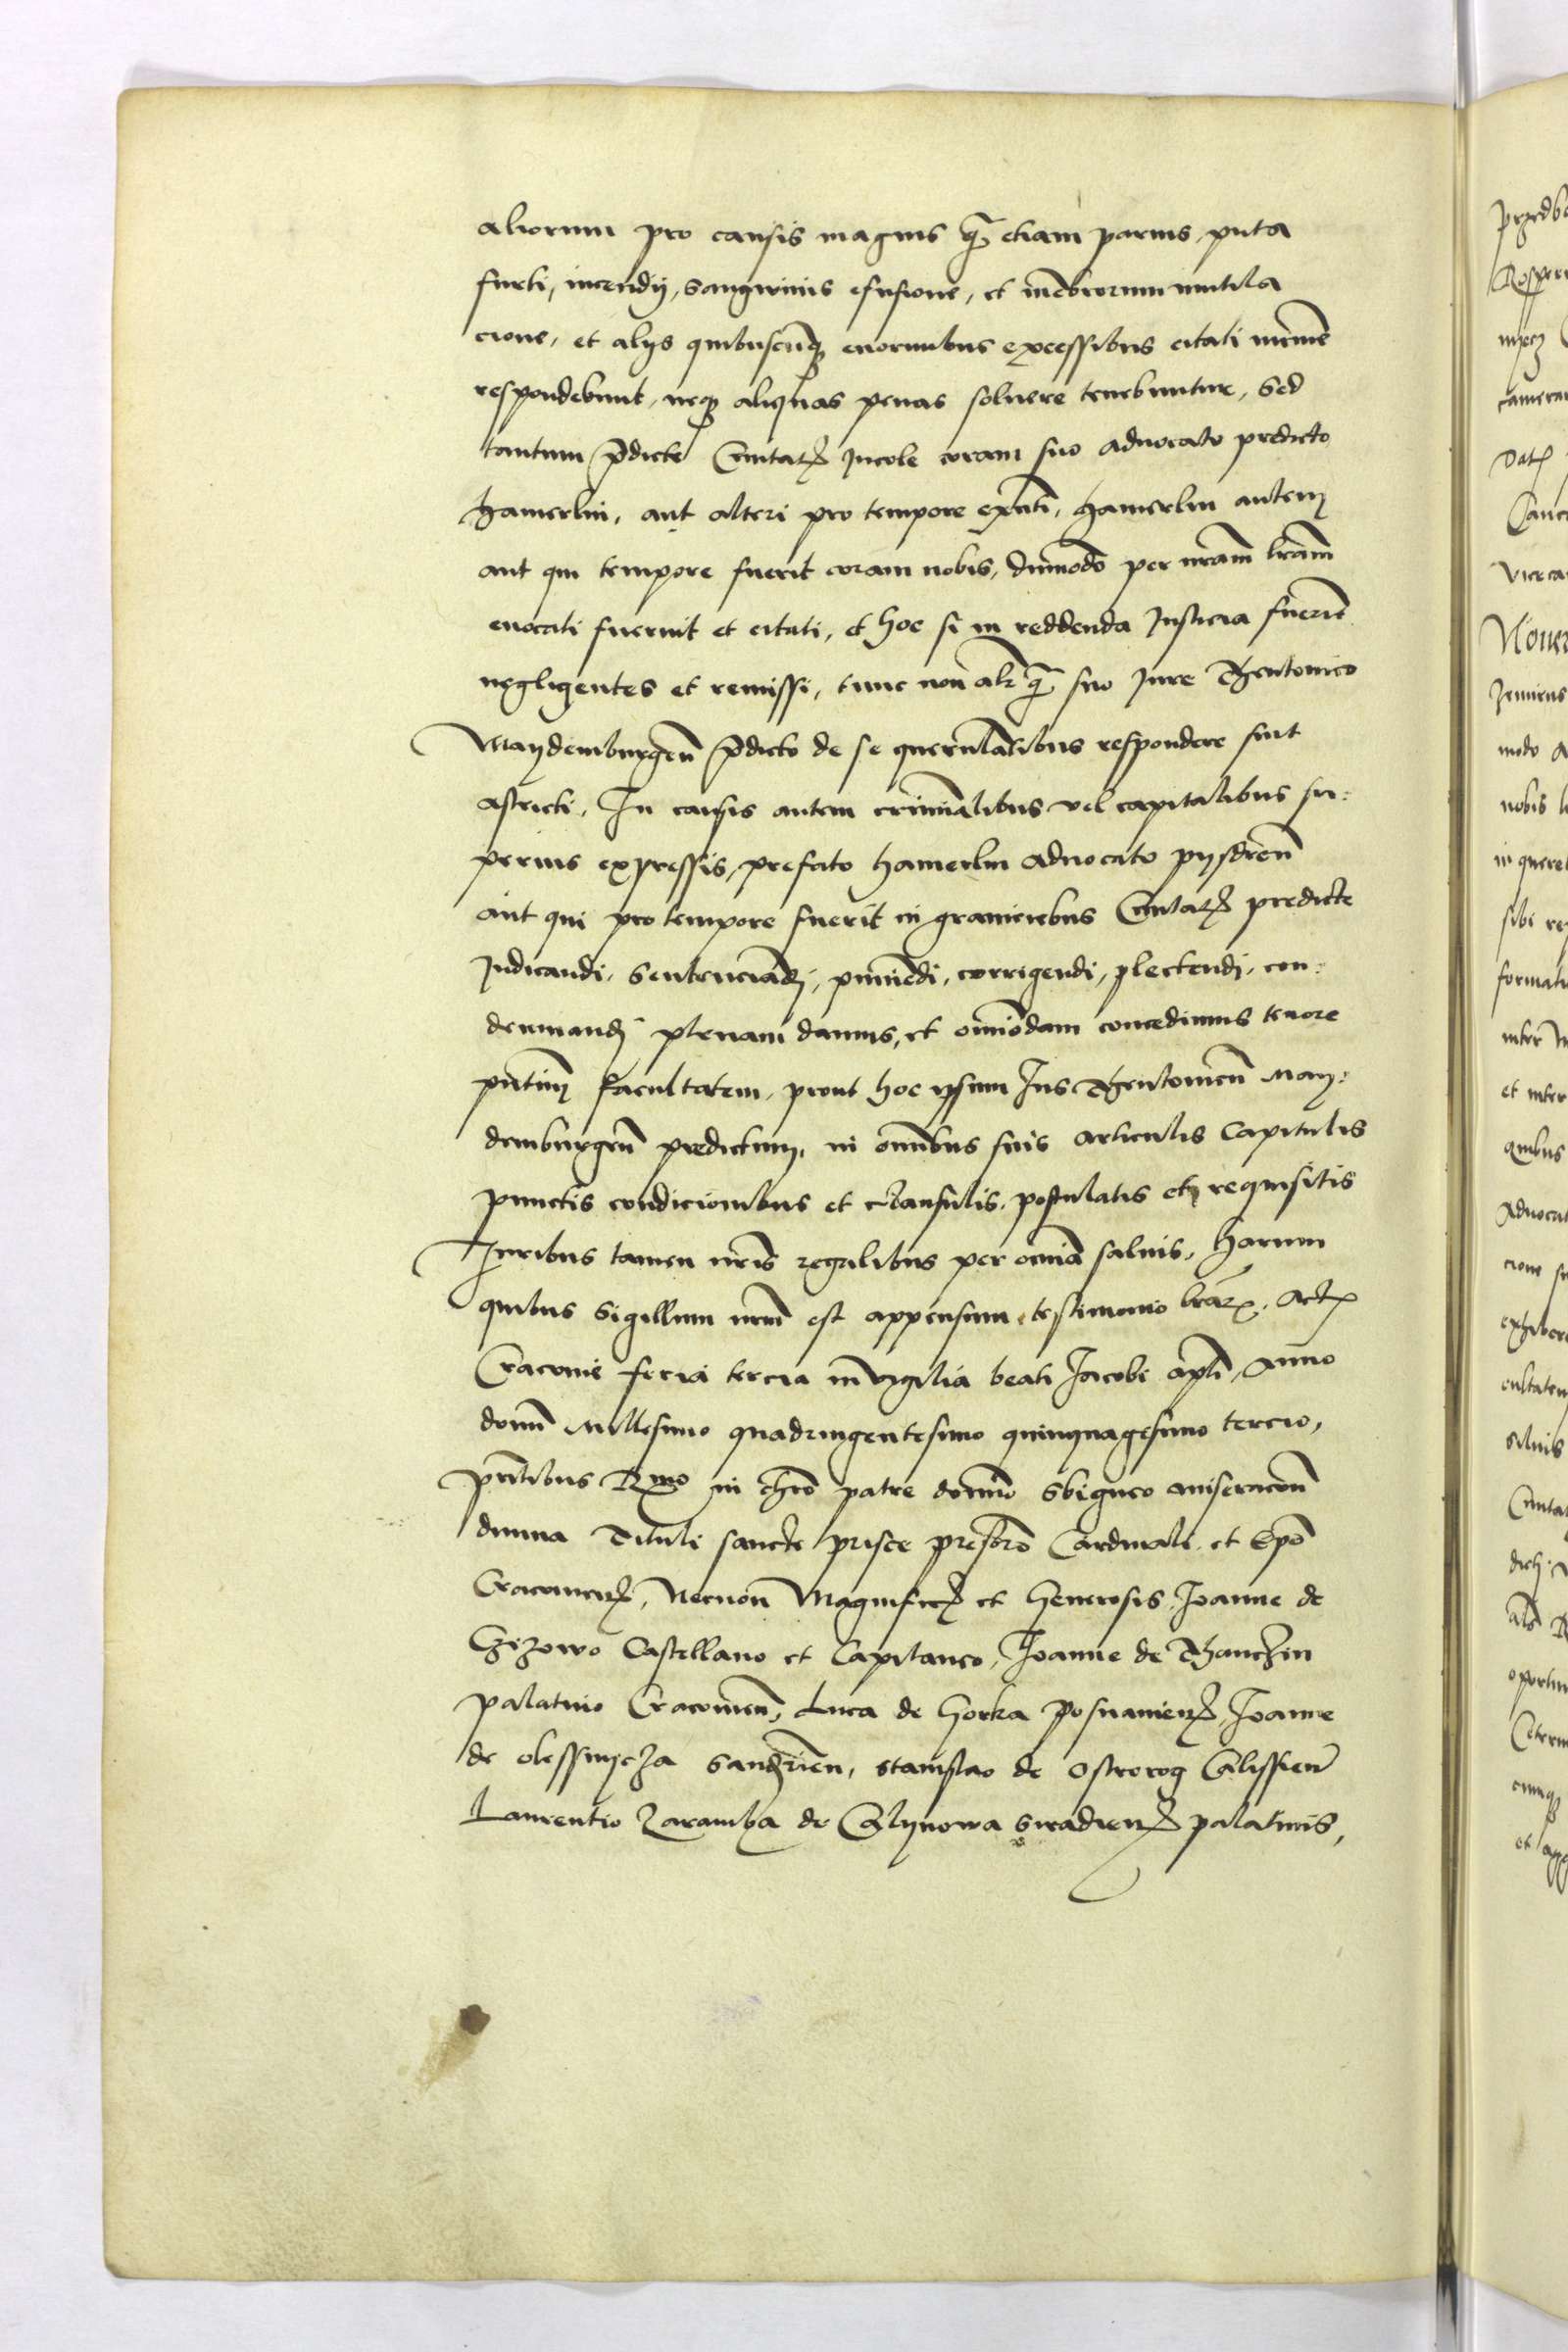 aliorum pro causis magnis q̃ʒ etiam parvis, puta
furti, incendij, sangwinis efusione, et mẽbrorum mutila
cione, et alijs quibuscũqʒ enormibus excessibus citati mĩme
respondebunt, neqʒ aliquas penas soluere tenebuntur, Sed
tantum p̃dicte Ciuitatꝭ Jncole coram suo aduocato predicto
Hamerlin, aut alteri pro tempore exñti, Hamerlin autem
aut qui tempore fuerit coram nobis, dũmodo per nrãm lrãm
euocati fuerint et citati, et hoc si in reddenda Justicia fuerĩt
negligentes et remissi, tunc non alr̃ q̃ʒ suo Jure Theutonico
Maydemburgeñ p̃dicto de se querulãtibus respondere sint
astricti, In causis autem criminãlibus vel capitalibus su:
perius expressis, prefato Hamerlin Aduocato pysdreñ
aut qui pro tempore fuerit in graniciebus Ciuitatꝭ predicte
Judicandi, Sentenciãdi, puniẽdi, corrigendi, plectendi, con:
demnandi plenam damus, et oimõdam concedimus tenore
pñtium facultatem, prout hoc ipsum Jus Theutonicũ May:
demburgeñ predictum, in omĩbus suis articulis Capitulis
punctis condicionibus et clausulis, postulatis et requisitis
Juribus tamen nrĩs regalibus per omnia saluis, Harum
quibus Sigillum nrũm est appensum testimonio lrãrꝭ. Actꝭ
Cracouie feria tercia in vigilia beati Jacobi apłi, Anno
domĩ Millesimo quadringentesimo quinquagesimo tercio,
pñtibus R̃mo in chrõ patre domĩo Sbigneo miseracõe
diuina Tituli sancte prisce presbrõ Cardinali et Ep̃o
Cracouieñ, Necnon Magnificꝭ et Generosis, Joanne de
Czizowo Castellano et Capitaneo, Joanne de Thanczin
palatino Cracouieñ, Luca de Gorka Posnanieñ, Joanne
de olessnycza Sandrieñ, Stanislao de Ostrorog Calissieñ
Laurentio Zaramba de Calynowa Siradieñ palatinis,